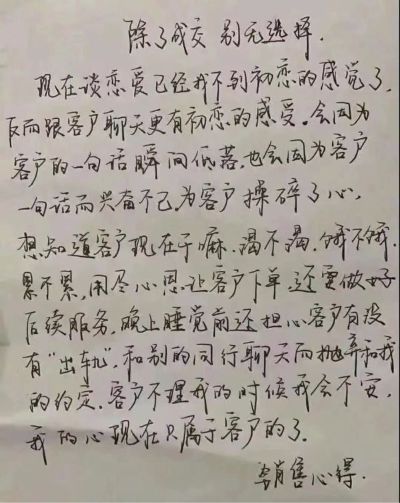 除了成交 别无选择.
现在谈恋爱已经找不到初恋的感觉了,
反而跟客户聊天更有初恋的感受。会因为
客户的一句话瞬间低落,也会因为客户
一句话而兴奋不已,为客户操碎了心,
想知道客户现在干嘛、渴不渴,饿不饿.
累不累,用尽心思让客户下单,还要做好
后续服务,晚上睡觉前还担心客户有没
有"出轨",和别的同行聊天而抛弃和我
的约定,客户不理我的时候我会不安,
我的心现在只属于客户的了.
销售心得.